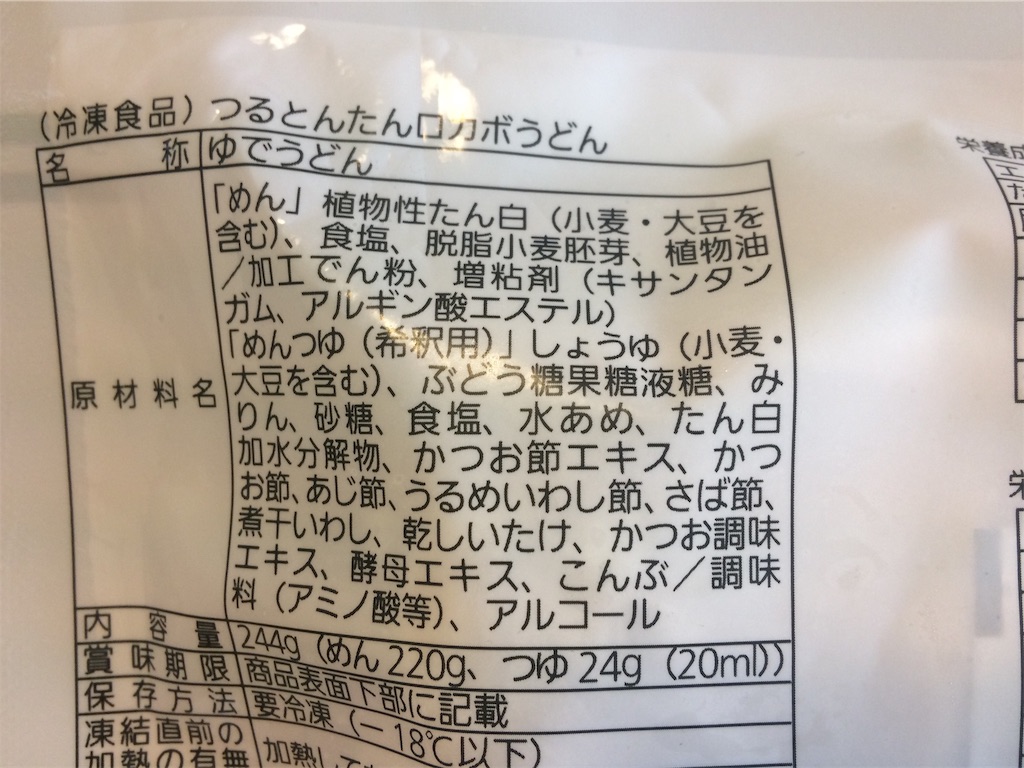 (冷凍食品) つるとんたんロカボうどん
名称 ゆでうどん
原材料名
「めん」植物性たん白(小麦・大豆を
含む)、食塩、脱脂小麦胚芽、植物油
/加工でん粉、増粘剤(キサンタン
ガム、アルギン酸エステル)
「めんつゆ(希釈用)」しょうゆ(小麦・
大豆を含む)、ぶどう糖果糖液糖、み
りん、砂糖、食塩、水あめ、たん白
加水分解物、かつお節エキス、かつ
お節、あじ節、うるめいわし節、さば節、
煮干いわし、乾しいたけ、かつお調味
エキス、酵母エキス、こんぶ/調味
料(アミノ酸等)、アルコール
内容量 244g(めん220g、つゆ24g(20ml))
賞味期限 商品表面下部に記載
保存方法 要冷凍(−18℃以下)
凍結直前の
加熱の有無 加熱して
栄養成